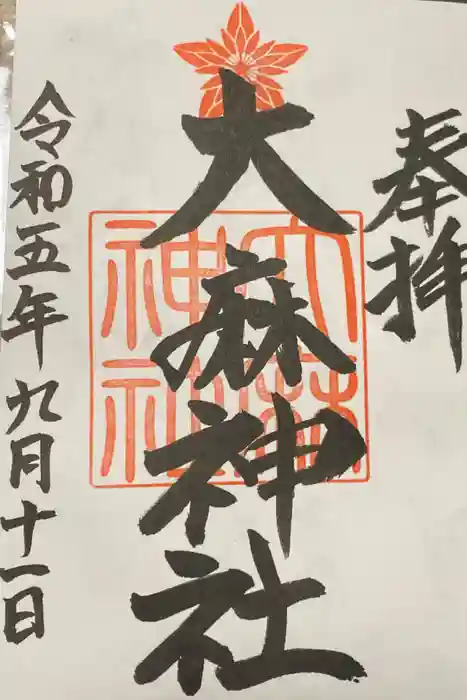 奉拝
大麻神社
大麻
神社
令和五年九月十一日